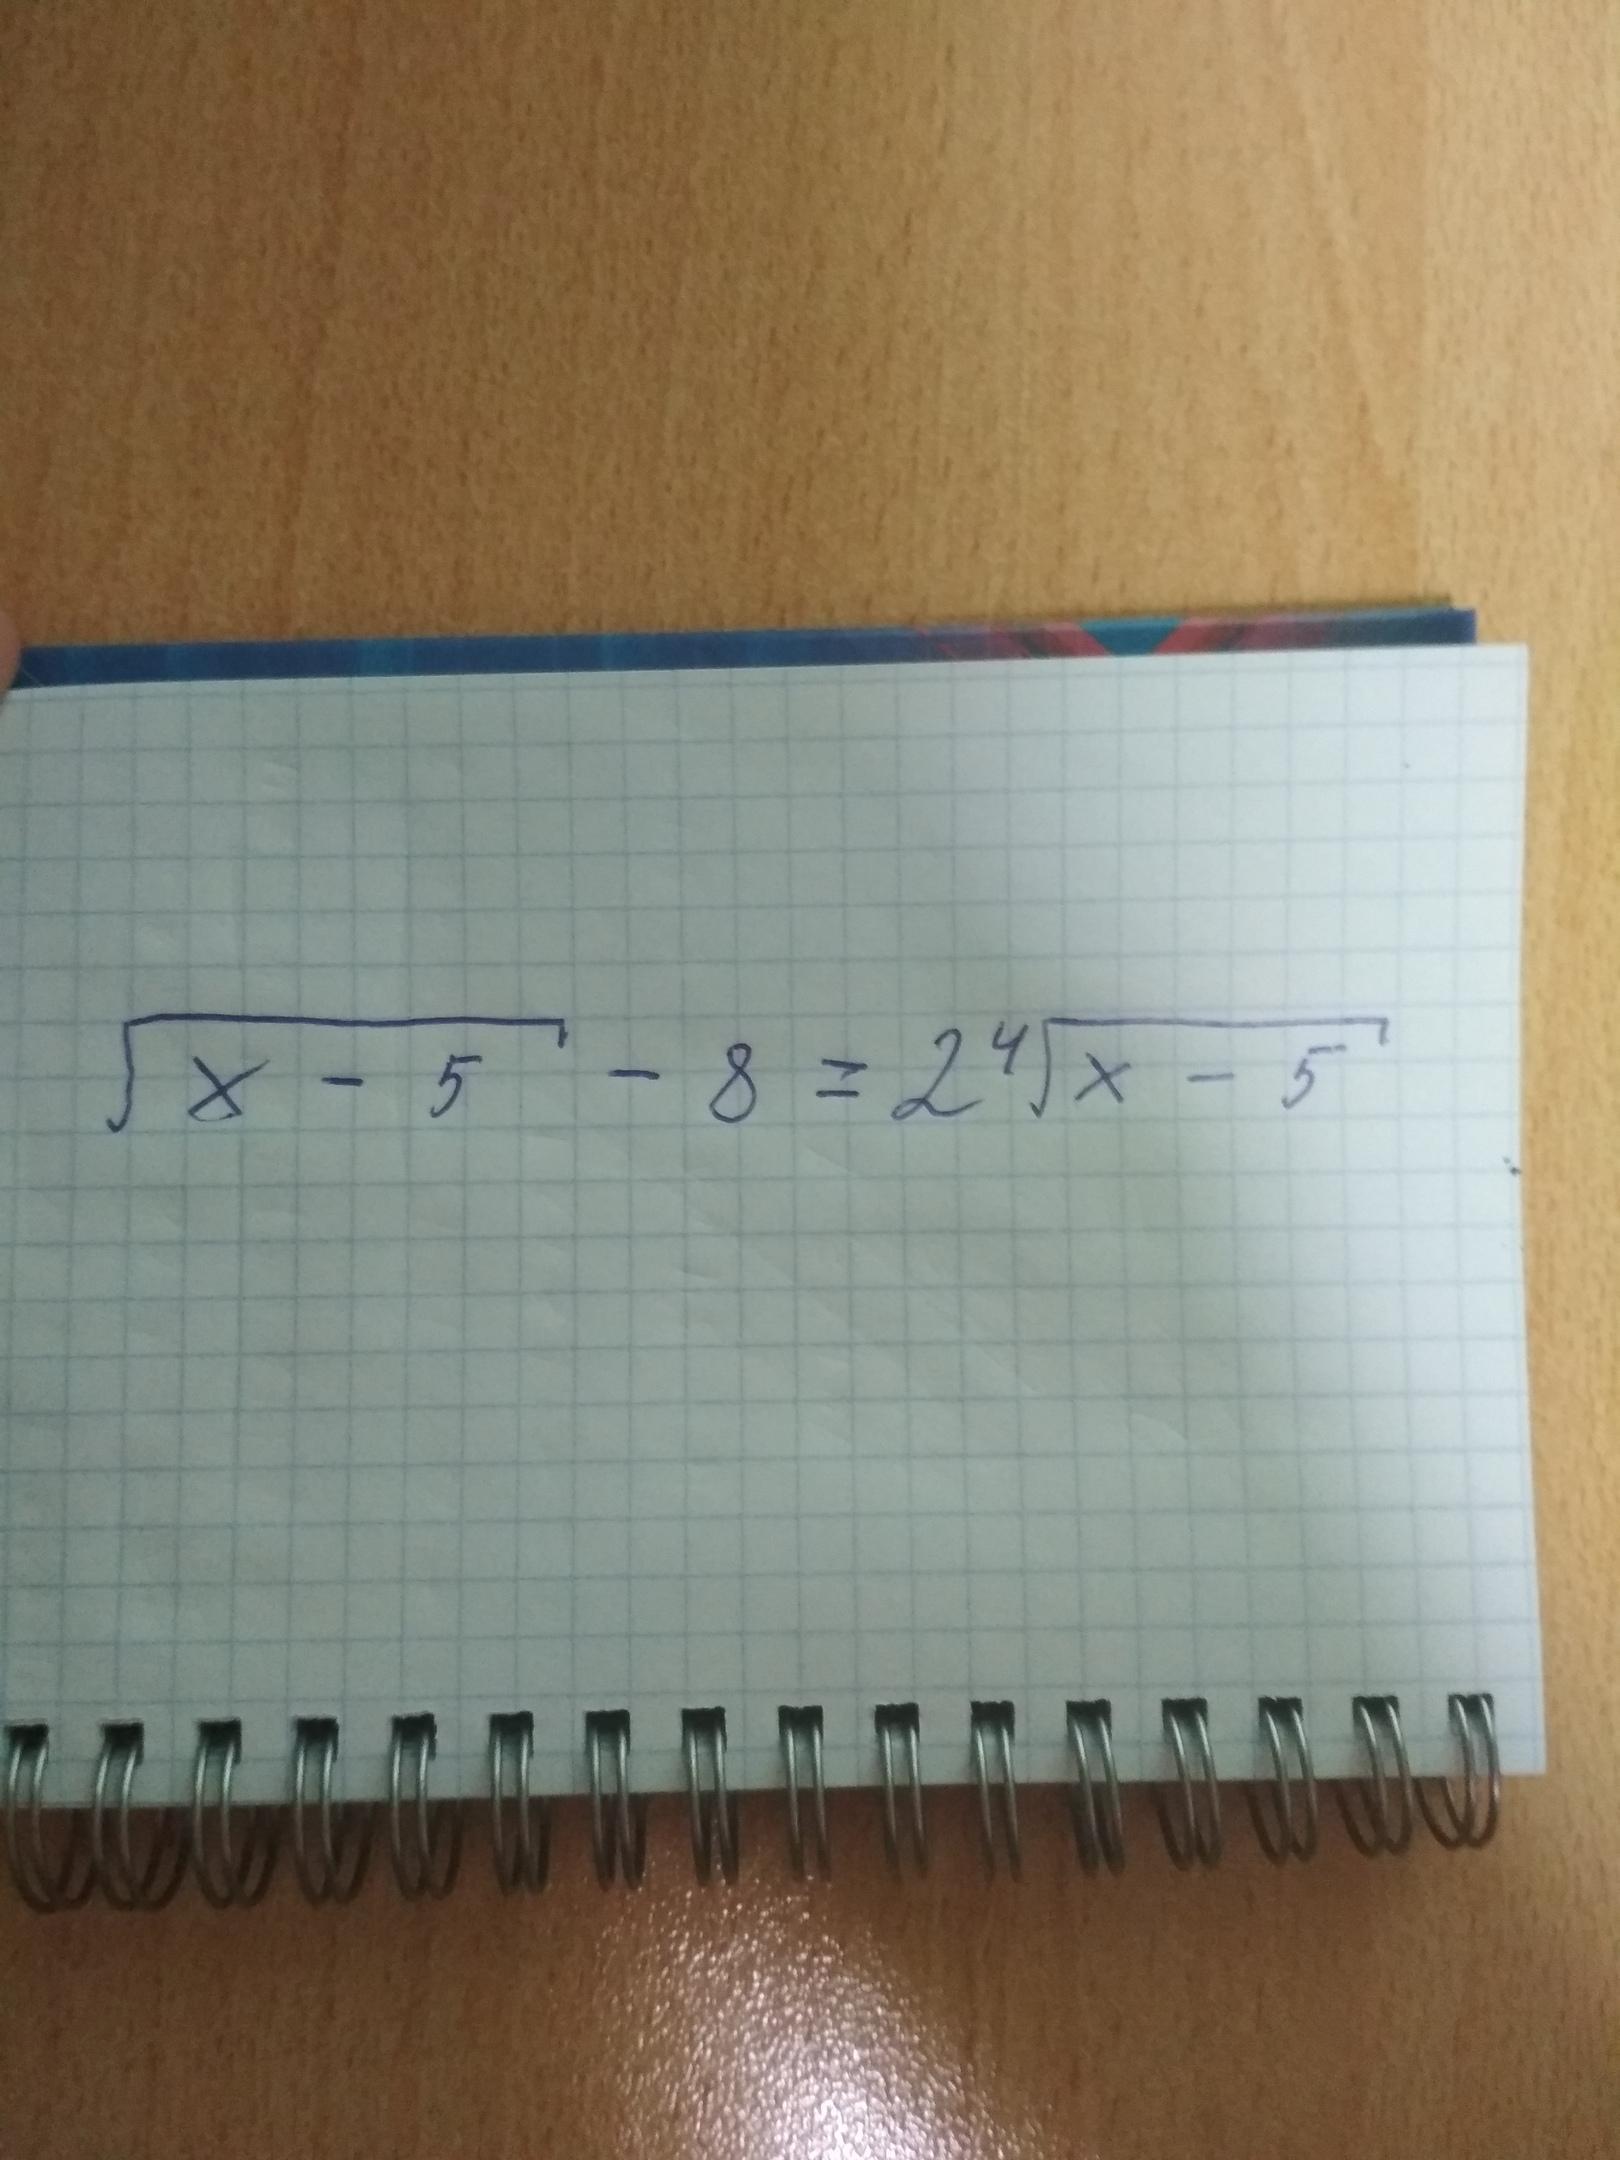 √(x - 5) - 8 = 2 ⁴√(x - 5)